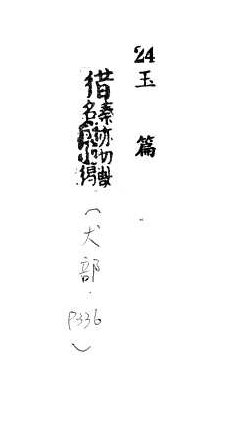 24 玉篇
猎
秦亦切獸
名
(犬部·P336)